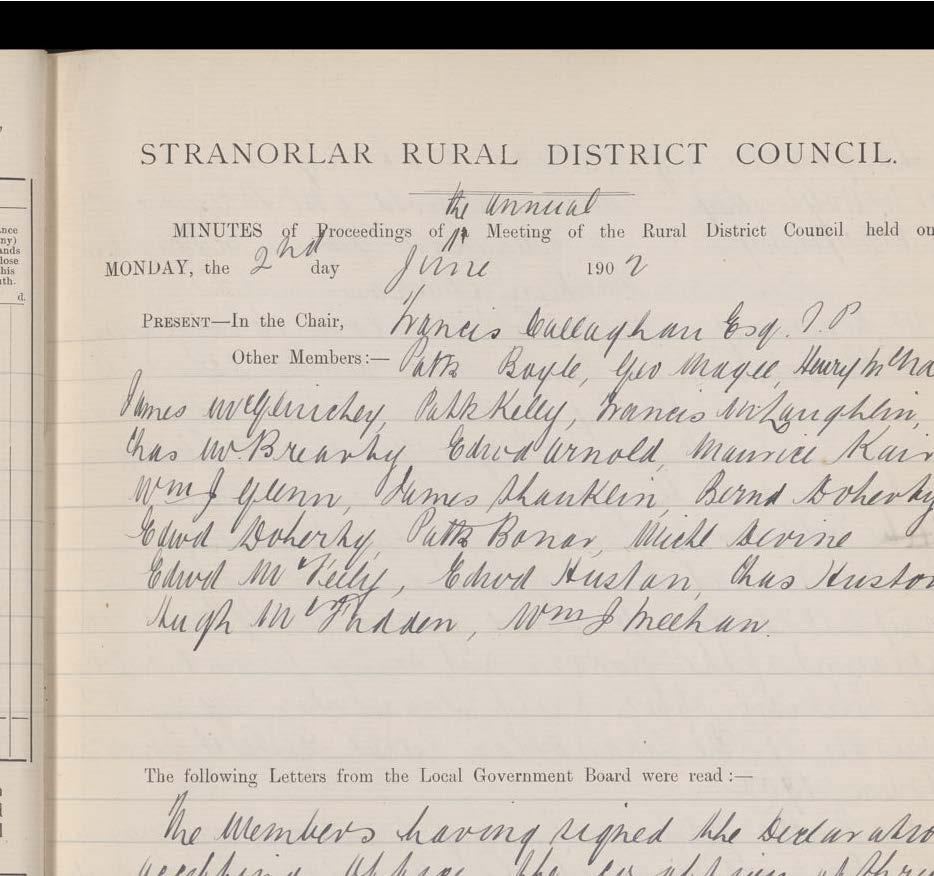 STRANORLAR RURAL DISTRICT COUNCIL.
the annual
MINUTES of Proceedings of Meeting of the Rural District Council held on
MONDAY, the 2nd day June 1902
PRESENT—In the Chair, Francis Callaghan Esq. J.P
Other Members:— Patk Boyle, Geo Magee, Henry
James McGlinchey, Patk Kelly, Francis McLaughlin,
Chas McBrearty Edwd Arnold, Maurice
Wm J Glenn, James Shanklin, Bernd Doherty
Edwd Doherty, Patk Bonar, Michl Devine
Edwd McFeely, Edwd Huston, Chas Huston
Hugh McFadden, Wm J Meehan.
The following Letters from the Local Government Board were read:—
The Members having signed the
office, the
nce
ny)
ands
lose
his
th.
d.